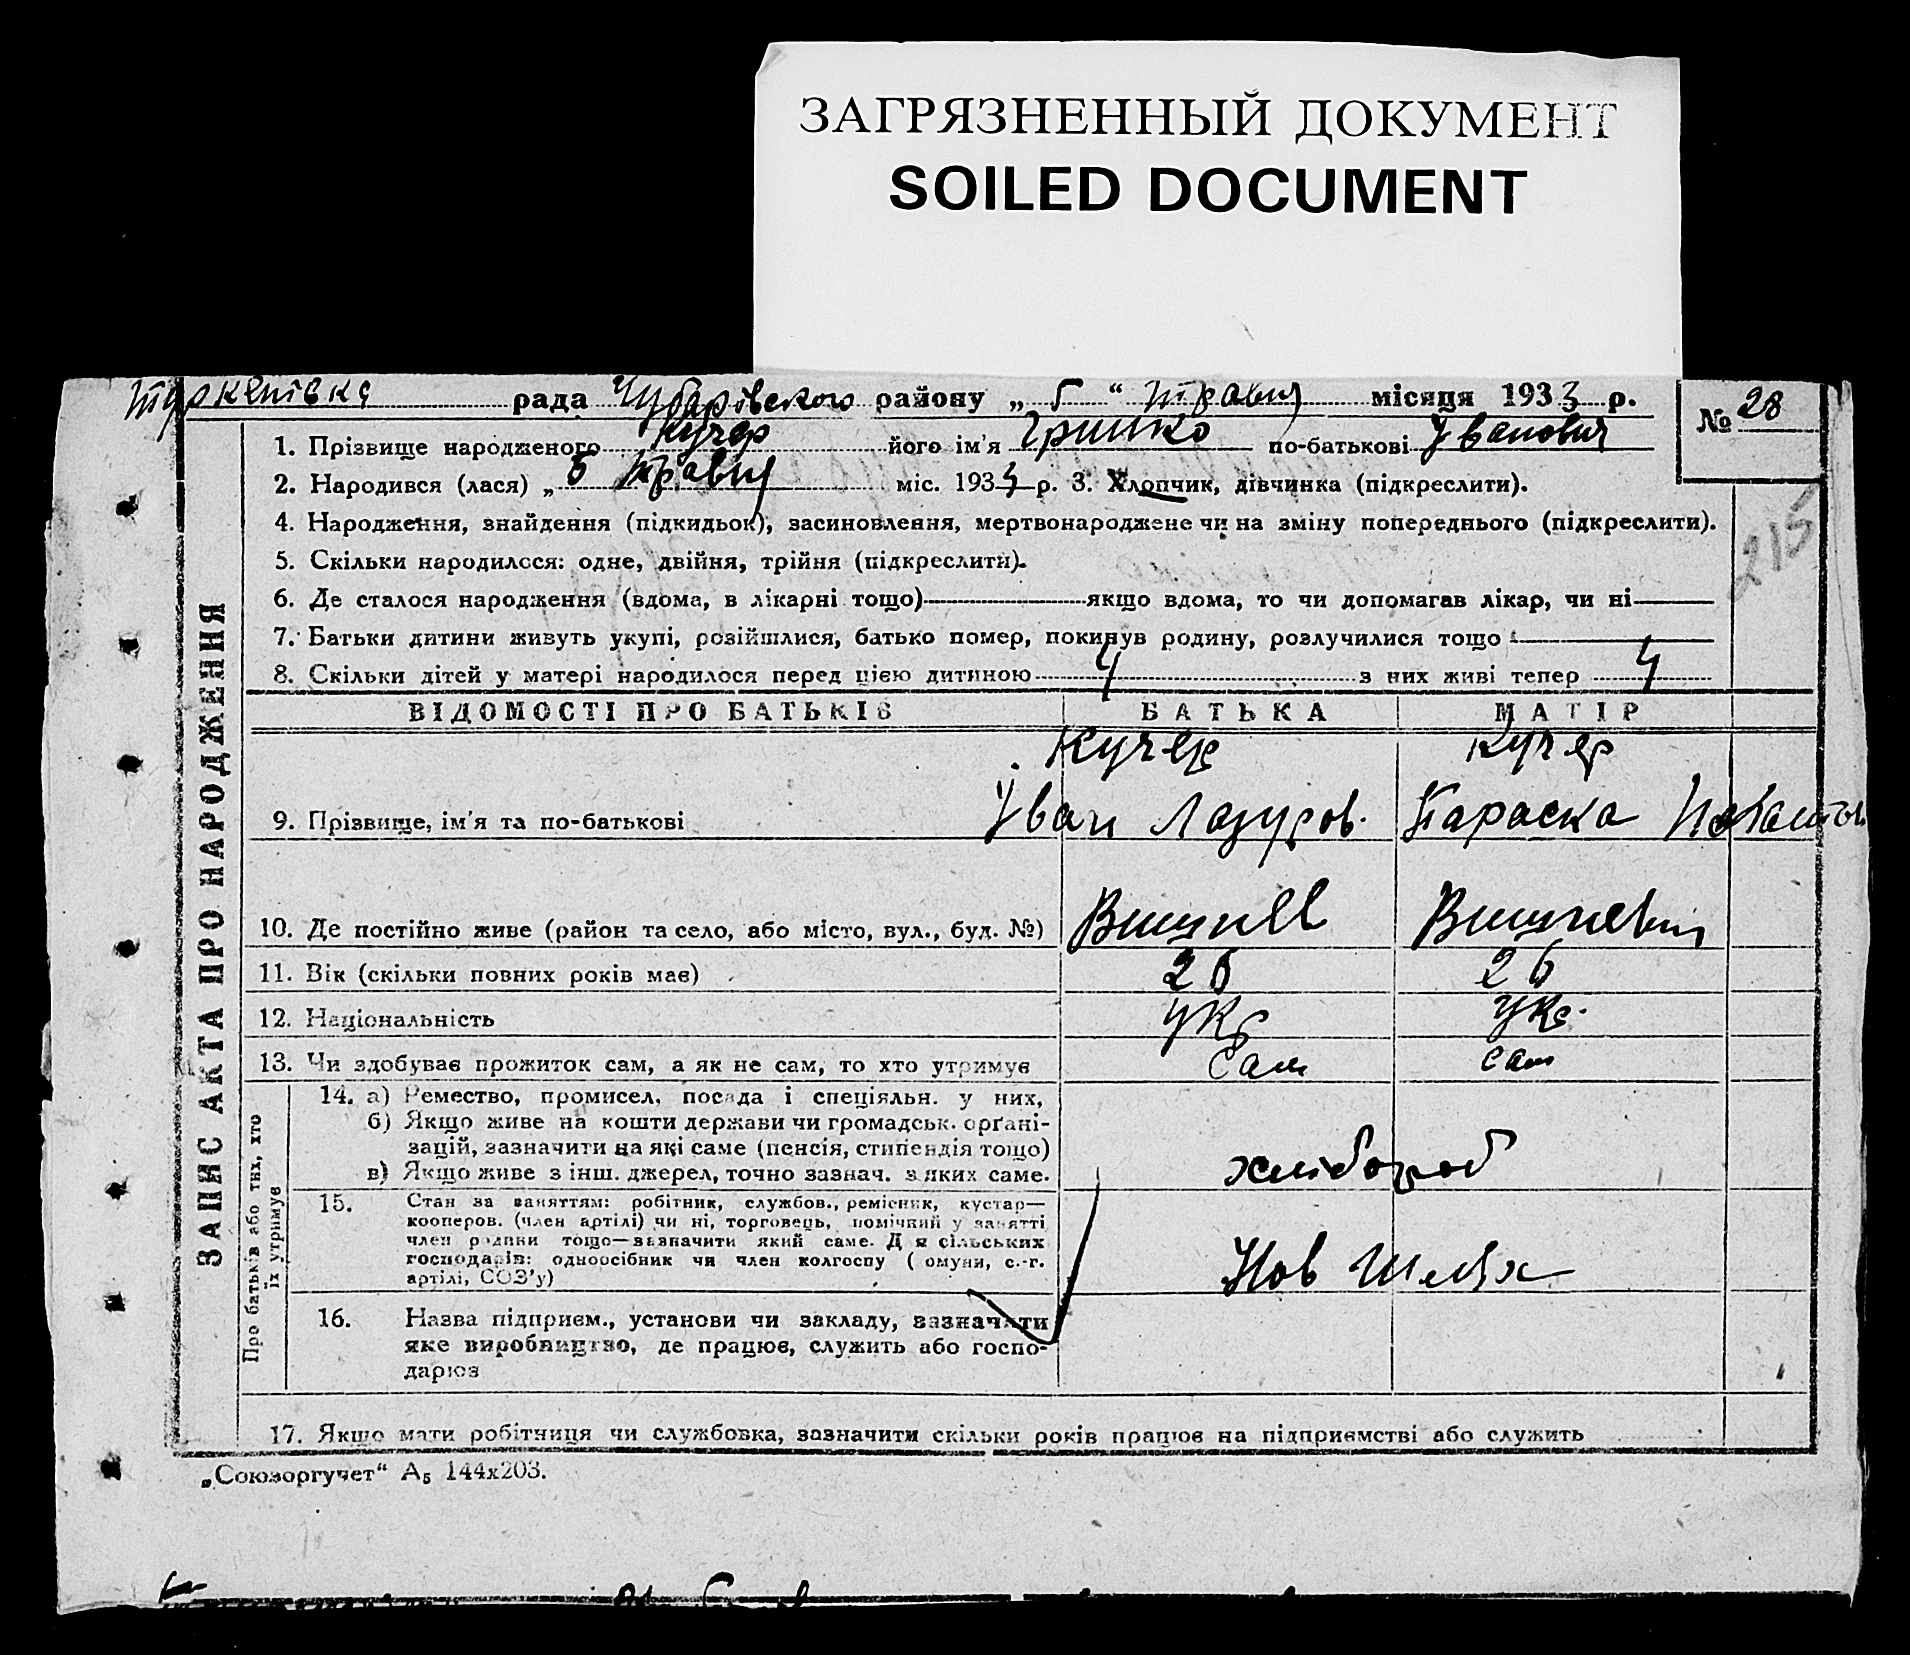 ЗАГРЯЗНЕННЫЙ ДОКУМЕНТ
SOILED DOCUMENT
рада Чубарівського району „ 5 “ травня місяця 1933 р.
№ 28
1. Прізвище народженого Кучер його ім'я Гришко по-батькові Іванович
2. Народився (лася) „ 5 травня міс. 1933 р. 3. Хлопчик, дівчинка (підкреслити).
4. Народження, знайдення (підкидьок), засиновлення, мертвонароджене чи на зміну попереднього (підкреслити).
215
5. Скільки народилося: одне, двійня, трійня (підкреслити).
6. Де сталося народження (вдома, в лікарні тощо) якщо вдома, то чи допомагав лікар, чи ні
7. Батьки дитини живуть укупі, розійшлися, батько помер, покинув родину, розлучилися тощо
8. Скільки дітей у матері народилося перед цією дитиною 4 з них живі тепер 4
ЗАПИС АКТА ПРО НАРОДЖЕННЯ
ВІДОМОСТІ ПРО БАТЬКІВ БАТЬКА МАТІР
Кучер Кучер
9. Прізвище, ім'я та по-батькові Іван Лазуров. Параска
10. Де постійно живе (район та село, або місто, вул., буд. №)
11. Вік (скільки повних років має) 26 26
12. Національність укр укр.
13. Чи здобуває прожиток сам, а як не сам, то хто утримує Сам сам
Про батьків або тих, хто
їх утримує
14. а) Ремество, промисел, посада і спеціяльн. у них,
б) Якщо живе на кошти держави чи громадськ. орґані-
зацій, зазначити на які саме (пенсія, стипендія тощо)
в) Якщо живе з інш. джерел, точно зазнач. з яких саме.
хлібороб
15. Стан за заняттям: робітник, службов., ремісник, кустар—
кооперов. (член артілі) чи ні, торговець, помічний у занятті
член родини тощо—зазначити який саме. Для сільських
господарів: одноосібник чи член колгоспу (комуни, с.-г.
артілі, СОЗ'у)
Нов Шлях
16. Назва підприєм., установи чи закладу, зазначити
яке виробництво, де працює, служить або госпо-
дарює
17. Якщо мати робітниця чи службовка, зазначити скільки років працює на підприємстві або служить
„Союзоргучет“ А₅ 144х203.